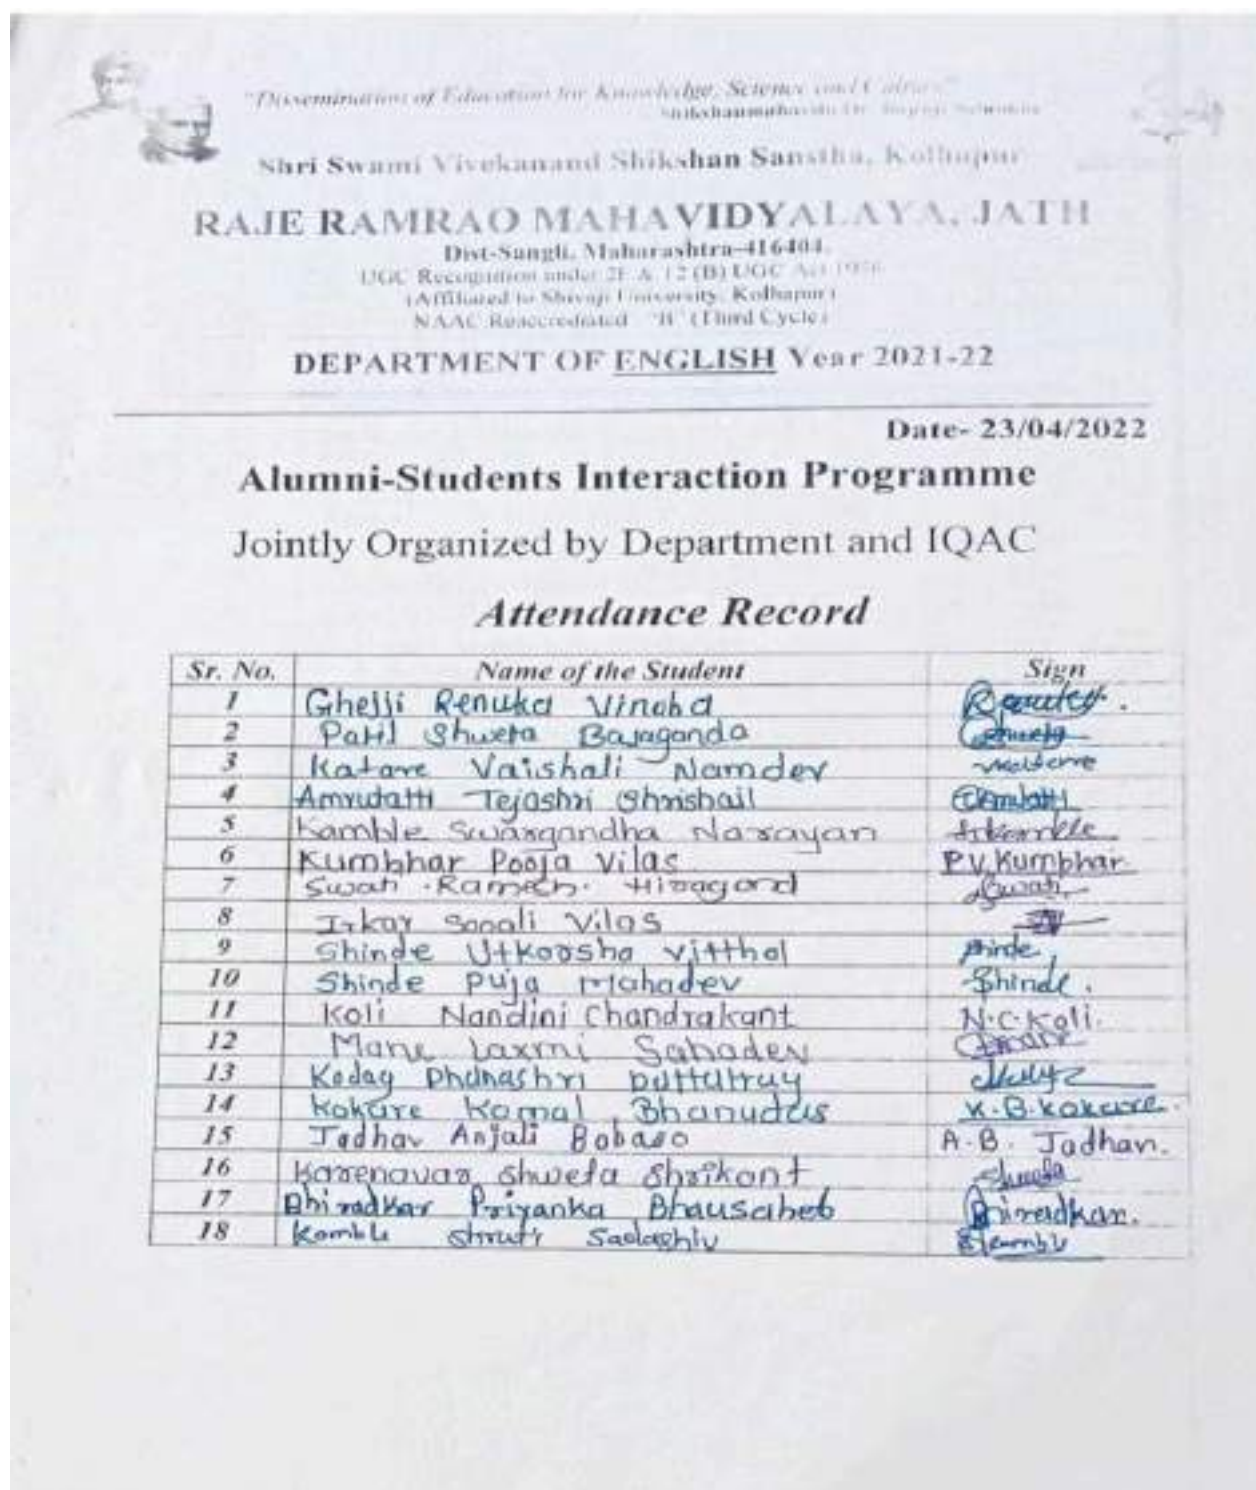 "Dissemination of Education for Knowledge, Science and Culture"
Shri Swami Vivekanand Shikshan Sanstha, Kolhapur
RAJE RAMRAO MAHAVIDYALAYA, JATH
Dist-Sangli, Maharashtra-416404.
UGC Recognition under 2F & 12 (B) UGC Act 1956
(Affiliated to Shivaji University, Kolhapur)
NAAC Reaccredited "B" (Third Cycle)
DEPARTMENT OF ENGLISH Year 2021-22
Date- 23/04/2022
Alumni-Students Interaction Programme
Jointly Organized by Department and IQAC
Attendance Record
Sr. No. Name of the Student Sign
1 Ghejji Renuka Vinoba
2 Patil Shweta Basaganda Shweta
3 Katare Vaishali Namdev
4 Amrutatti Tejashri Shrishail Amrutatti
5 Kamble Swargandha Narayan
6 Kumbhar Pooja Vilas P.V.Kumbhar
7 Swati Ramesh Hiragond Swati
8 Irkar Sonali Vilas
9 Shinde Utkarsha Vitthal Shinde
10 Shinde Puja Mahadev Shinde.
11 Koli Nandini Chandrakant N.C.Koli.
12 Mane Laxmi Sahadev
13 Kodag Dhanashri Dattatray
14 Kokare Komal Bhanudas K.B.Kokare.
15 Jadhav Anjali Babaso A.B. Jadhav.
16 Karenavar Shweta Shrikant Shweta
17 Bhiradkar Priyanka Bhausaheb Bhiradkar.
18 Kamble Shruti Sadashiv